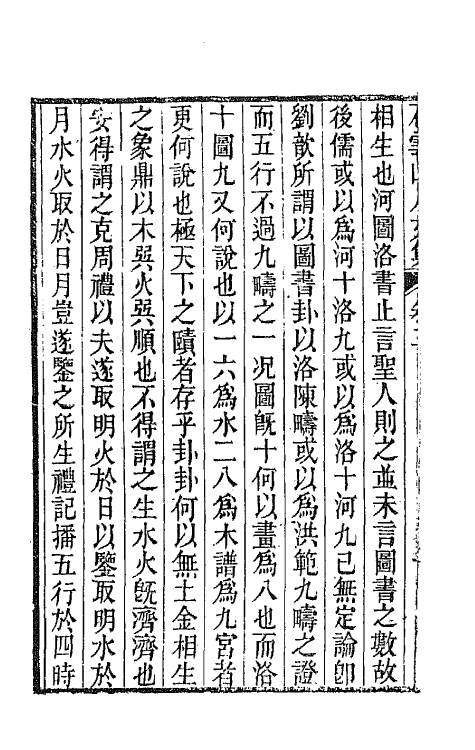 相生也河圖洛書止言聖人則之並未言圖書之數故
後儒或以爲河十洛九或以爲洛十河九已無定論卽
劉歆所謂以圖書卦以洛陳疇或以爲洪範九疇之證
而五行不過九疇之一况圖旣十何以畫爲八也而洛
十圖九又何說也以一六爲水二八爲木譜爲九宮者
更何說也極天下之賾者存乎卦卦何以無土金相生
之象鼎以木㢲火㢲順也不得謂之生水火旣濟濟也
安得謂之克周禮以夫遂取明火於日以鑒取明水於
月水火取於日月豈遂鑒之所生禮記播五行於四時